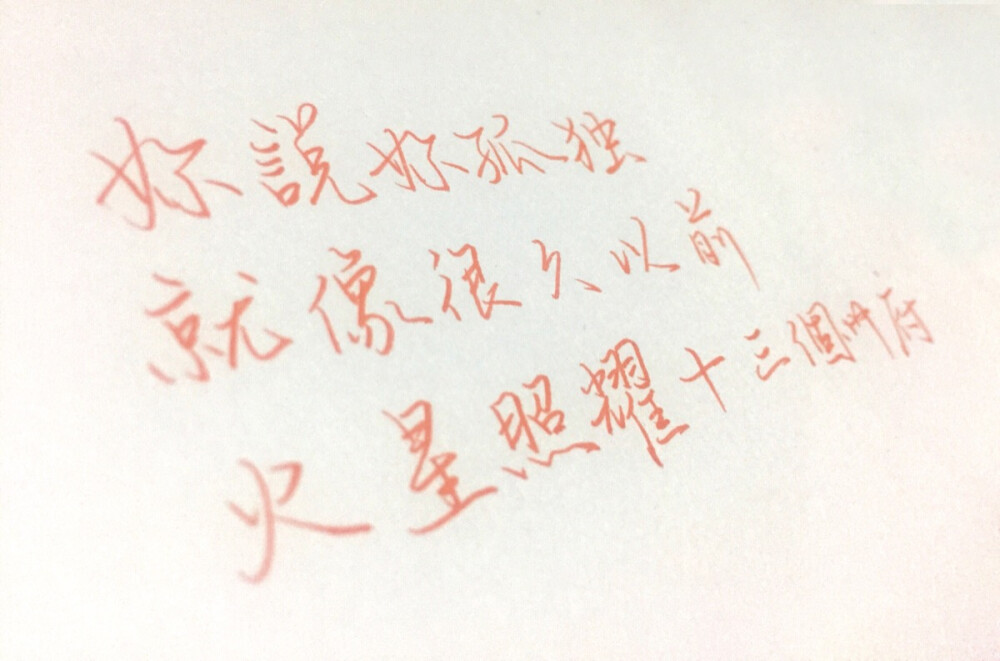 妳說妳孤独
就像很久以前
火星照耀十三個州府